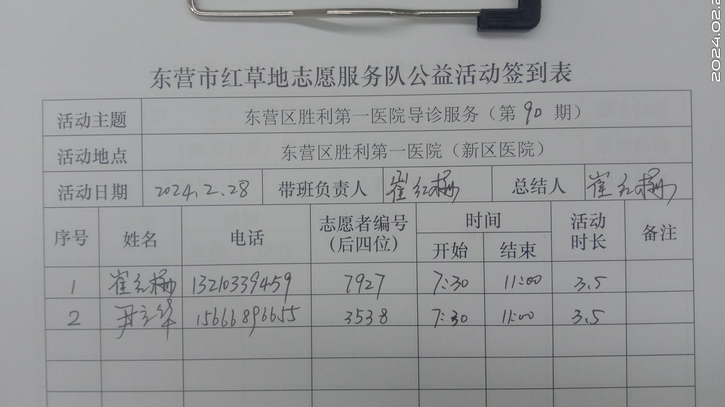 2024.02.2
东营市红草地志愿服务队公益活动签到表
活动主题 东营区胜利第一医院导诊服务（第 90 期）
活动地点 东营区胜利第一医院（新区医院）
活动日期 2024.2.28 带班负责人 崔红梅 总结人 崔红梅
序号 姓名 电话 志愿者编号（后四位） 时间 开始 结束 活动时长 备注
1 崔红梅 13210339459 7927 7:30 11:00 3.5
2 15666896655 3538 7:30 11:00 3.5